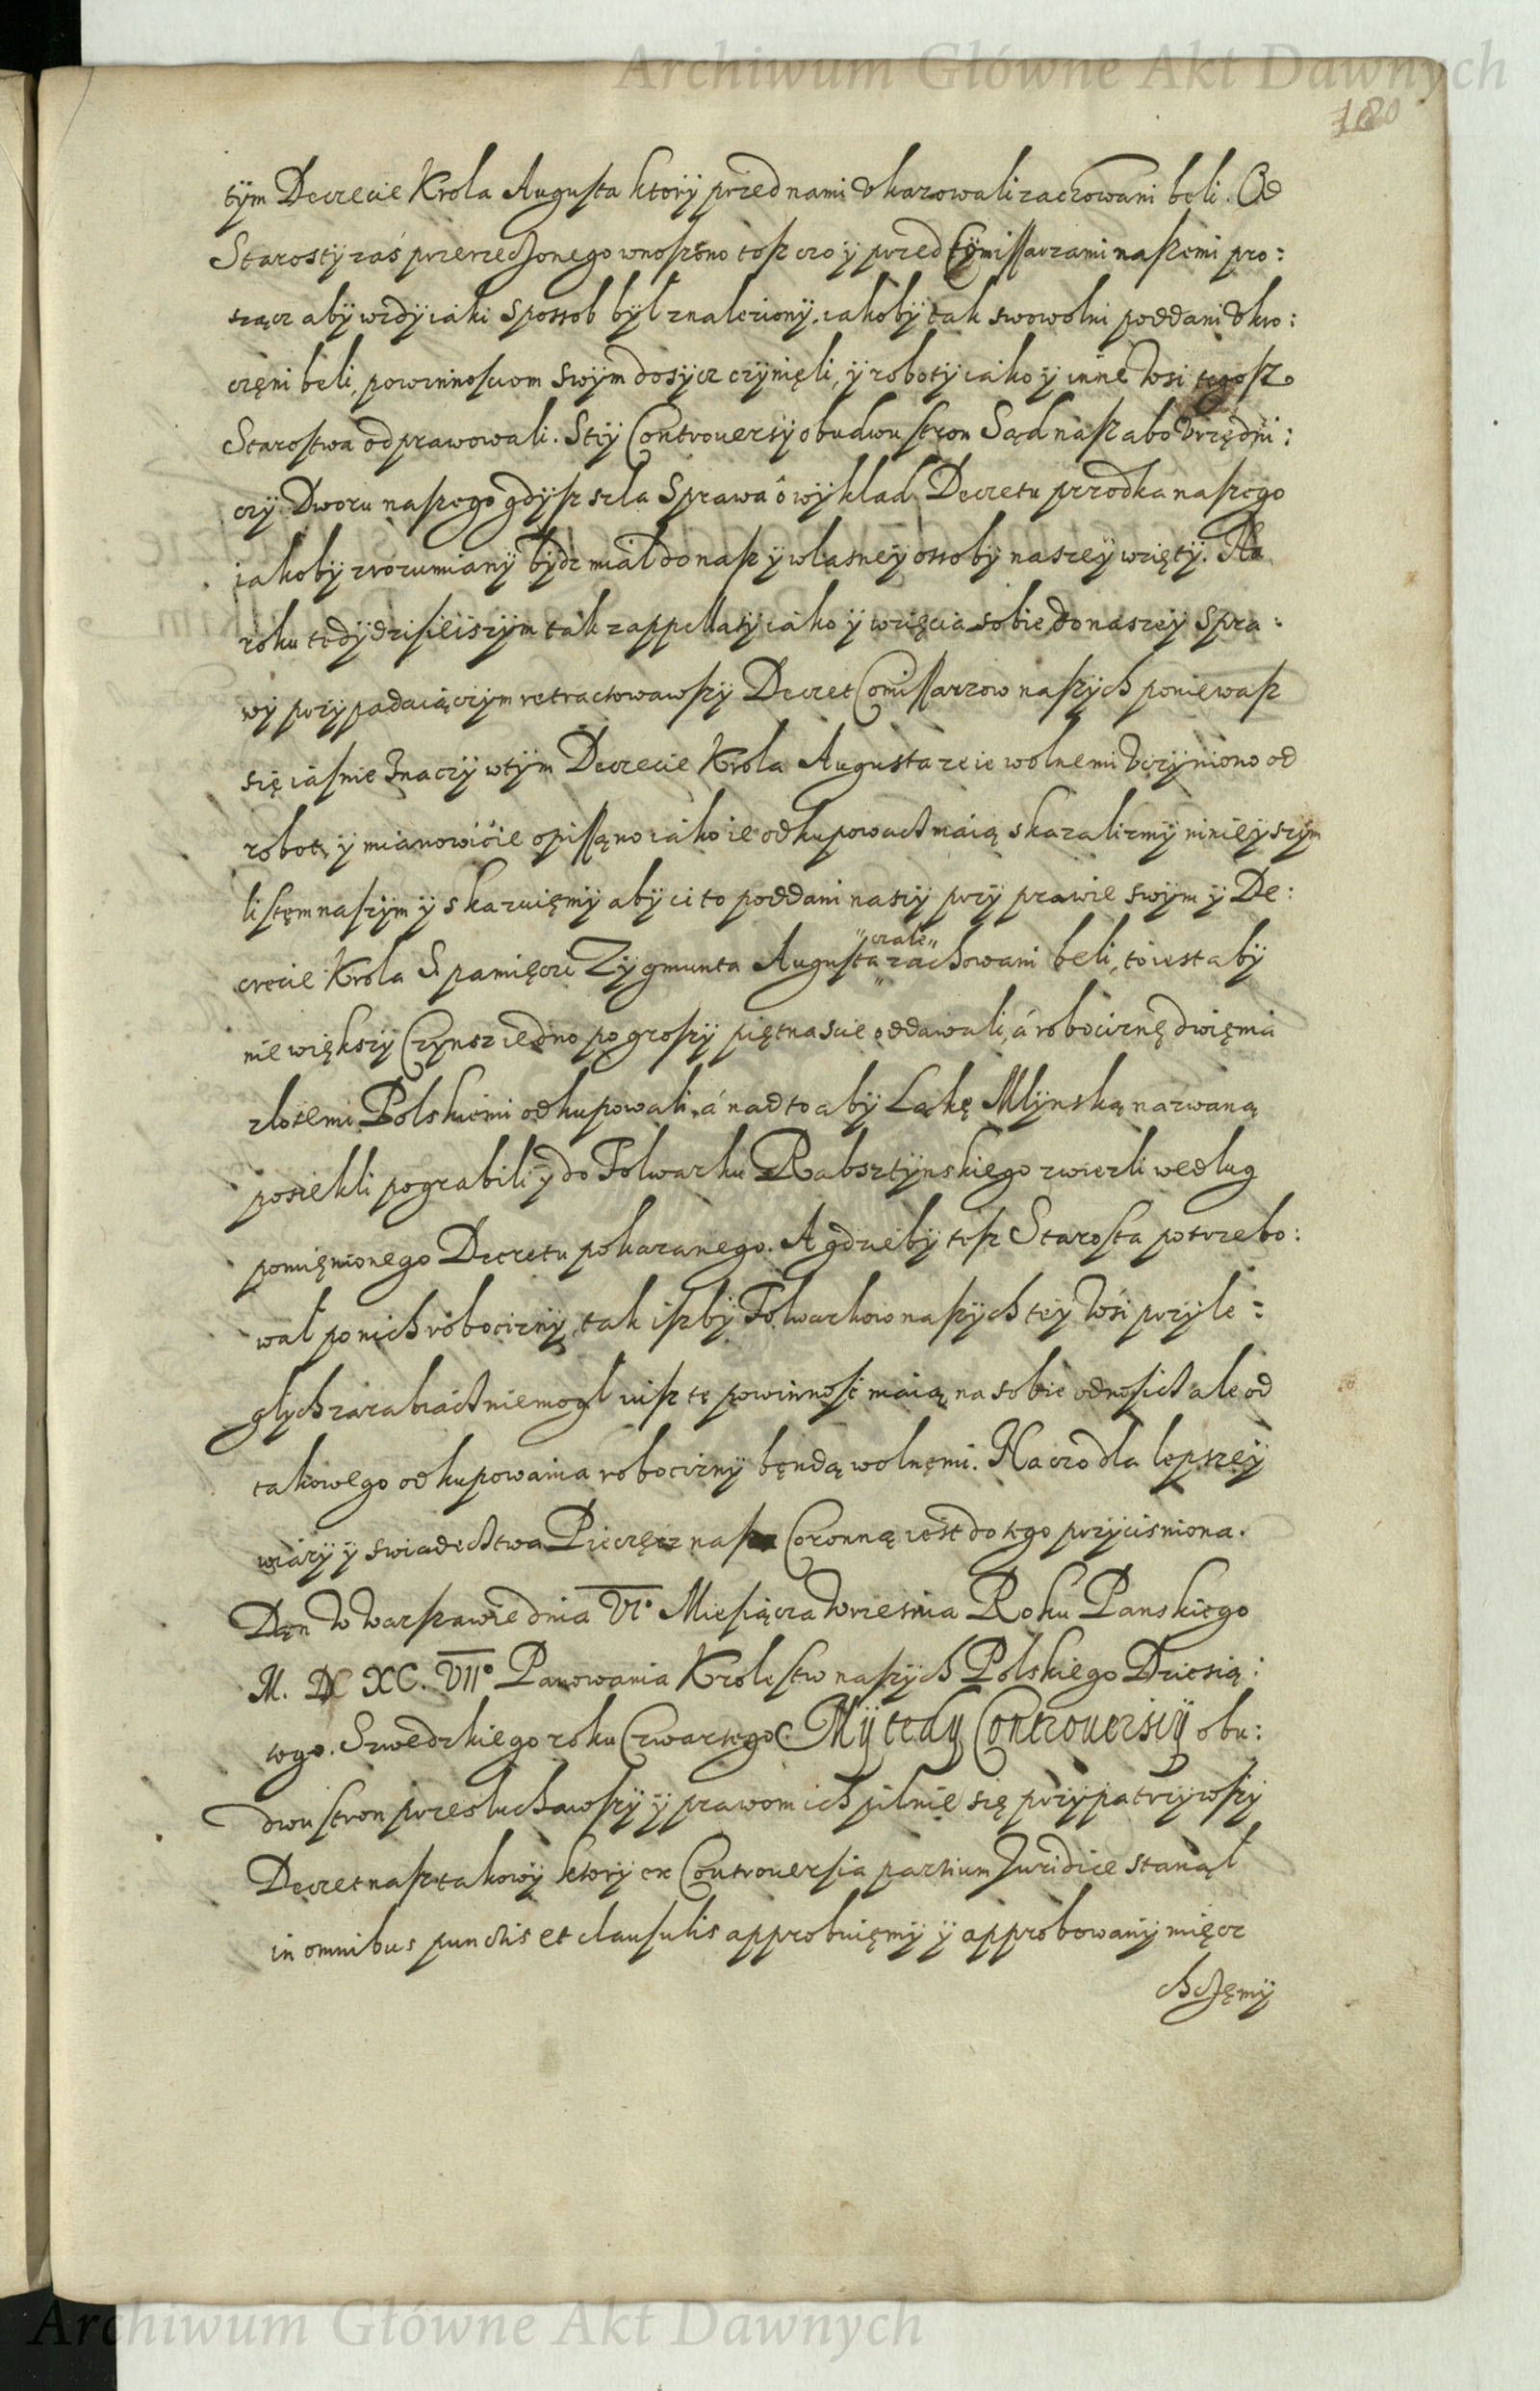 Archiwum Główne Akt Dawnych
180
tÿm Decrecie Krola Augusta ktorÿ przed nami vkazowali zachowani beli. Od
Starostÿ zaś przerzeczonego wnoszono tosz czo ÿ przed Comissarzami naszemi pro:
sząc abÿ wżdÿ iaki sposob bÿł znalezionÿ, iakobÿ tak swowolni poddani vkro:
częni beli, powinnosciom swÿm dosÿcz czÿnięli, ÿ robotÿ iako ÿ inne wsi tegosz
Starostwa odprawowali. S tÿ Controuersÿ obudwu stron Sąd nasz abo Vrzędni:
czÿ Dworu naszego gdÿsz szla sprawa o wÿklad Decretu przodka naszego
iakobÿ zrozumianÿ bÿdz miał do nasz ÿ wlasneÿ ossobÿ naszeÿ wzięty. Na
roku tedÿ dzisieiszÿm tak z appellatÿ iako ÿ wzięcia sobie do naszeÿ spra:
wÿ przÿpadaiączÿm retractowawszÿ Decret Comissarzow naszÿch poniewasz
się iasnie znaczÿ w tÿm Decrecie Krola Augusta ze ie wolnemi vczÿniono od
robot, ÿ mianowicie opissano iako ie odkupowacz maią skazalizmÿ ninieÿszÿm
listem naszÿm ÿ skazuięmÿ abÿ ci to poddani naszÿ przÿ prawie swÿm ÿ De:
crecie Krola S. pamięci Zÿgmunta Augusta zachowani beli, to iest abÿ
czale
nie większÿ Czynsz iedno po groszÿ piętnascie oddawali, á robociznę dwięma
zlotemi Polskiemi odkupowali, á nad to abÿ Ląkę Mlÿnską nazwaną
posiekli pograbili ÿ do Folwarku Rabsztÿnskiego zwiezli według
pomięnionego Decretu pokazanego. A gdzie bÿ tesz Starosta potrzebo:
wał po nich robociznÿ, tak iszbÿ Folwarkow naszÿch teÿ wsi przÿle:
glÿch zarabiacz nie mogł iusz tę powinnosć maią na sobie odnosicz ale od
takowego odkupowania robociznÿ bęndą wolnęmi. Na czo dla lepszeÿ
wiarÿ ÿ swiadecztwa Pieczęcz nasza Coronną iest do tego przÿcisniona.
Dan w Warszawie dnia VI° Miesiącza Wrzesnia Roku Panskiego
M. D XC. VII° Panowania Krolestw naszÿch Polskiego Dziesią:
tego. Szwedzkiego roku Czwartego. Mÿ tedy Controuersiÿ obu:
dwu stron przesluchawszÿ ÿ prawom ich pilnie się przÿpatrzÿwszÿ
Decret nasz takowÿ ktorÿ ex Controuersia partium Juridice stanął
in omnibus punctis et clausulis approbuięmÿ ÿ approbowanÿ mięcz
chczęmÿ
Archiwum Główne Akt Dawnych